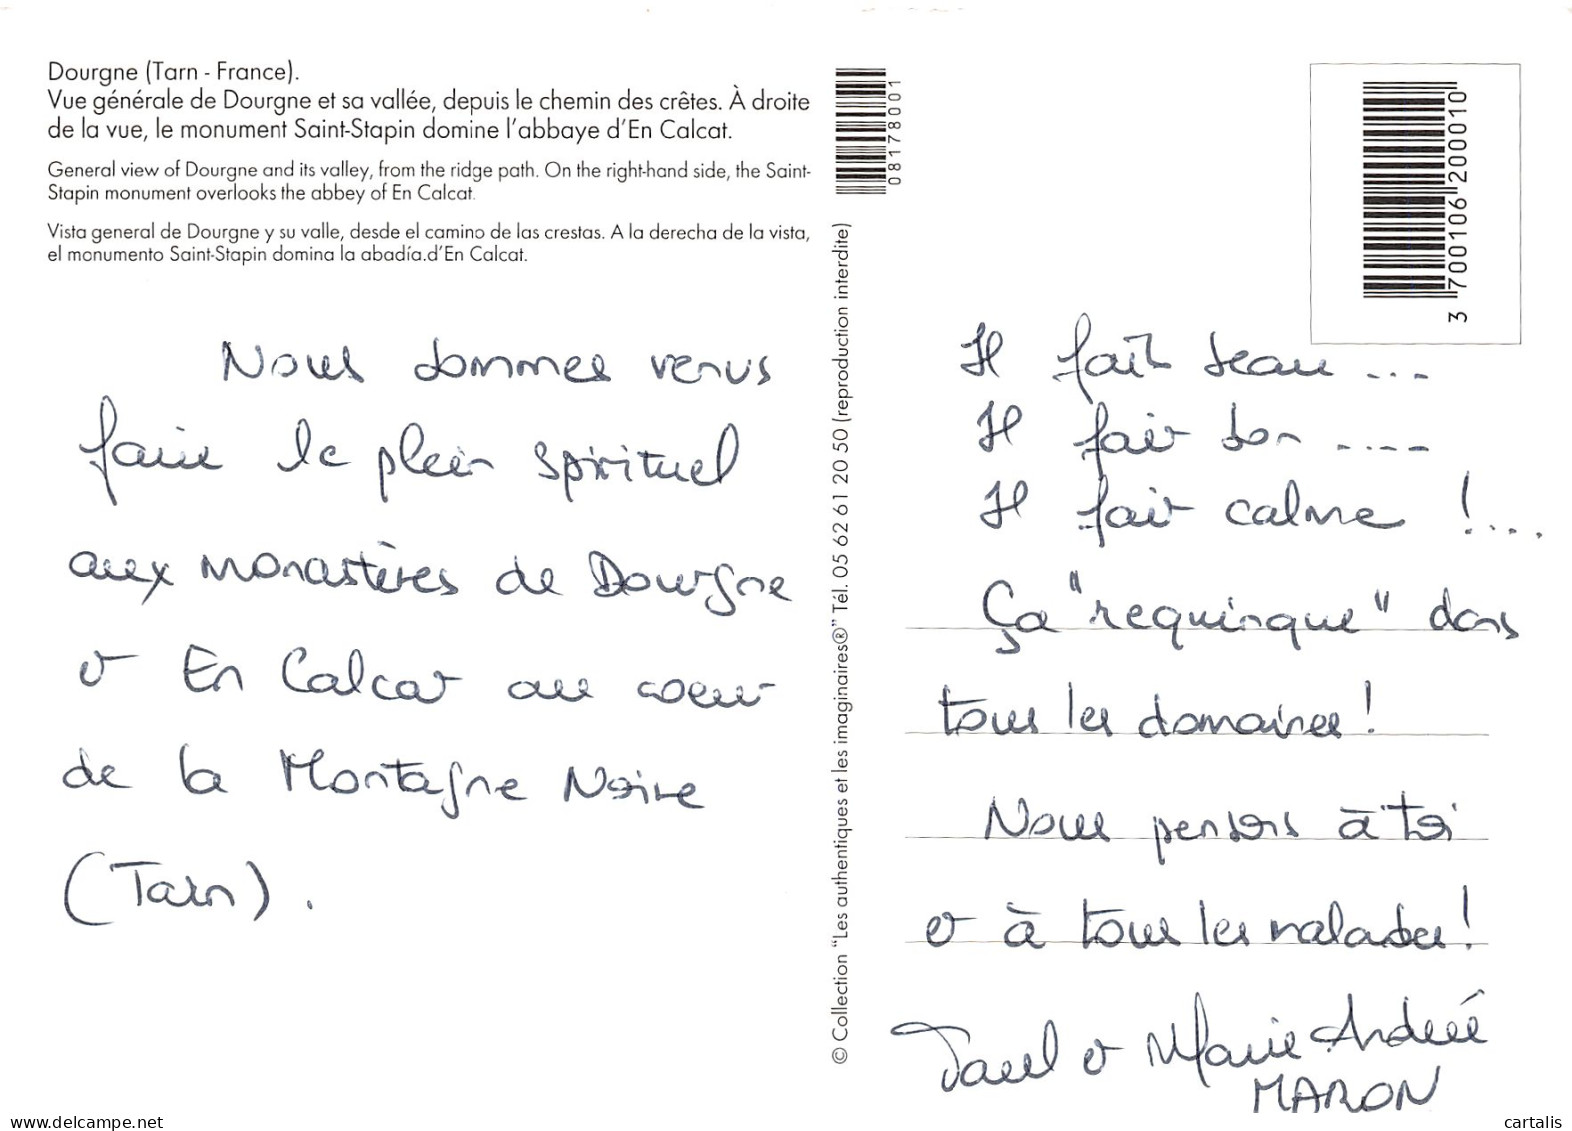 Dourgne (Tarn - France).
Vue générale de Dourgne et sa vallée, depuis le chemin des crêtes. À droite
de la vue, le monument Saint-Stapin domine l'abbaye d'En Calcat.
General view of Dourgne and its valley, from the ridge path. On the right-hand side, the Saint-
Stapin monument overlooks the abbey of En Calcat.
Vista general de Dourgne y su valle, desde el camino de las crestas. A la derecha de la vista,
el monumento Saint-Stapin domina la abadía.d'En Calcat.
Nous sommes venus
faire le plein spirituel
aux monastères de Dourgne
et En Calcat au coeur
de la Montagne Noire
(Tarn).
08178001
© Collection "Les authentiques et les imaginaires®" Tél. 05 62 61 20 50 (reproduction interdite)
3 700106 200010
Il fait beau ...
Il fait bon ....
Il fait calme !....
Ça "requinque" dans
tous les domaines !
Nous pensons à toi
et à tous les malades !
Paul et Marie Andrée
MARON
cartalis